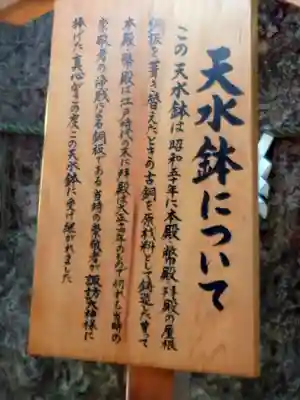 天水鉢について
この天水鉢は昭和五十年に本殿・幣殿・拝殿の屋根
銅板を葺き替えたときの古銅を原材料として鋳造した 従って
本殿・幣殿は江戸時代の末に拝殿は大正十四年のもので何れも当時の
崇敬者の浄財による銅板である当時の崇敬者が諏訪大神様に
捧げた真心がこの度この天水鉢に受け継がれました